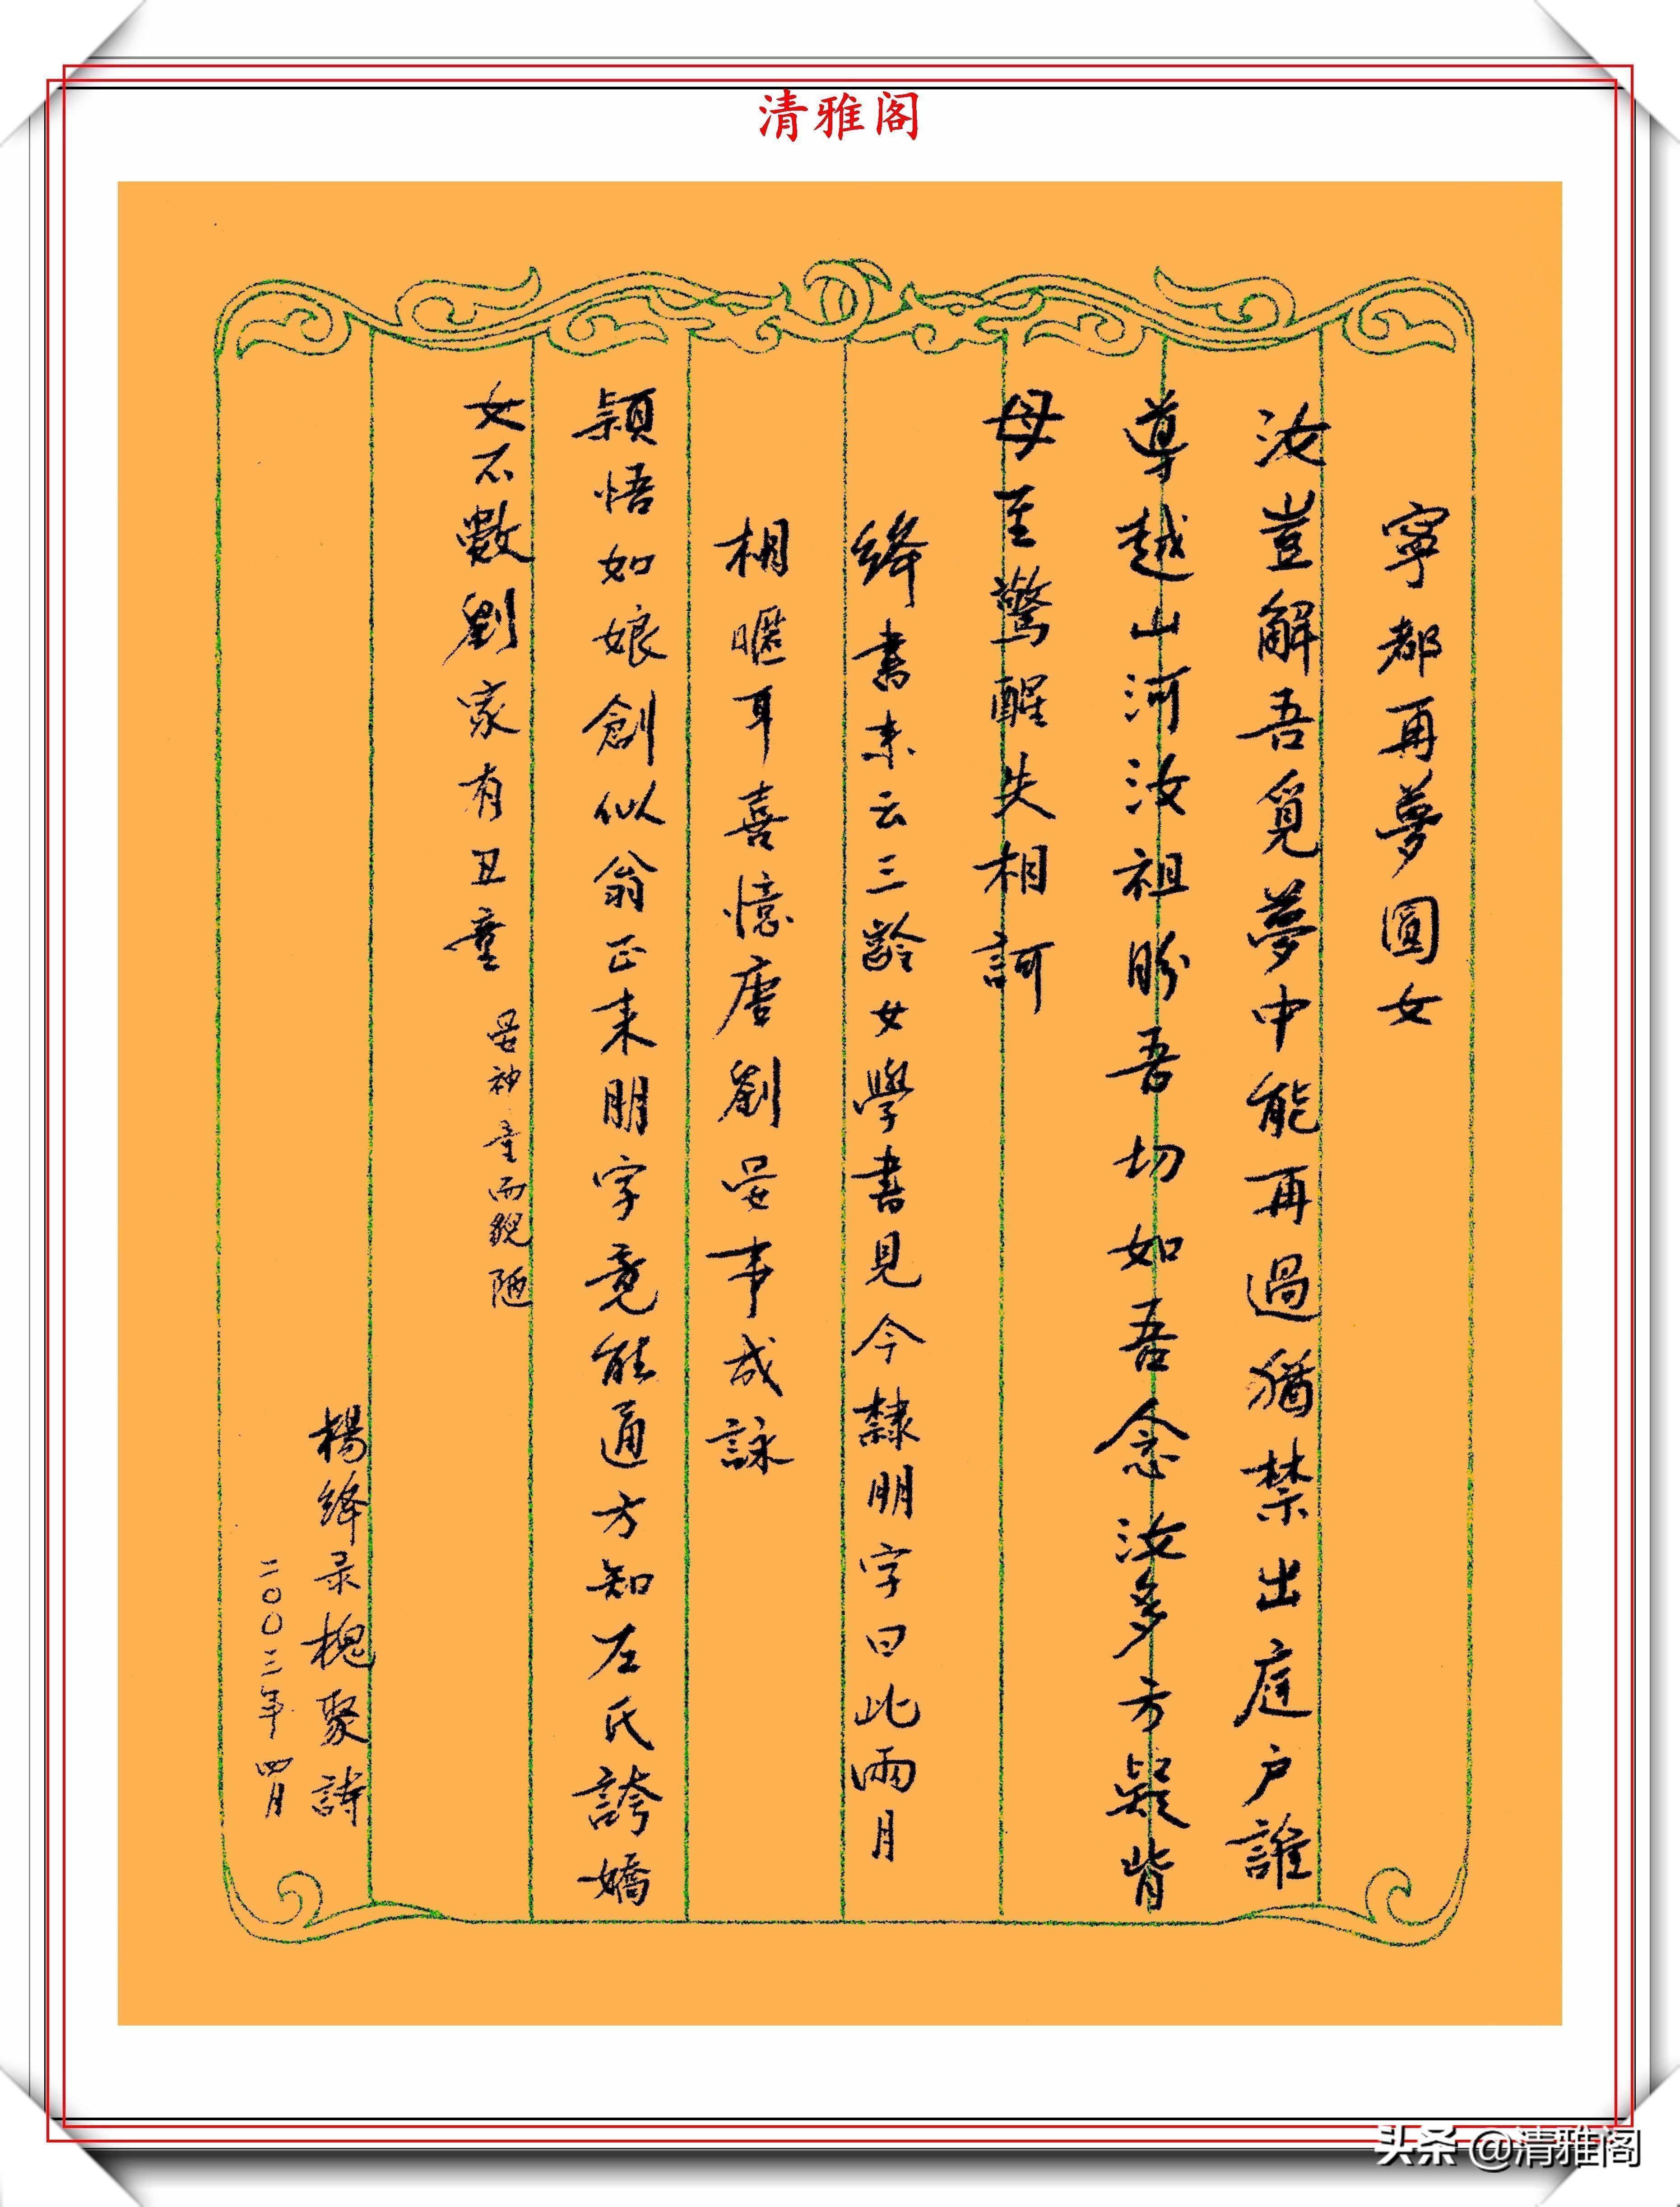 清雅阁
寧都再夢圓女
汝豈解吾覓夢中能再過猶禁出庭户誰
導越山河汝祖盼吾切如吾念汝多方疑背
母至驚醒失相訶
絳書来云三齡女學書見今隸朋字曰此兩月
相暱耳喜憶唐劉晏事成詠
穎悟如娘創似翁正来朋字竟能通方知左氏誇嬌
女不數劉家有丑童
晏神童而貌陋
楊絳录槐聚詩
二〇〇三年四月
头条 @清雅阁